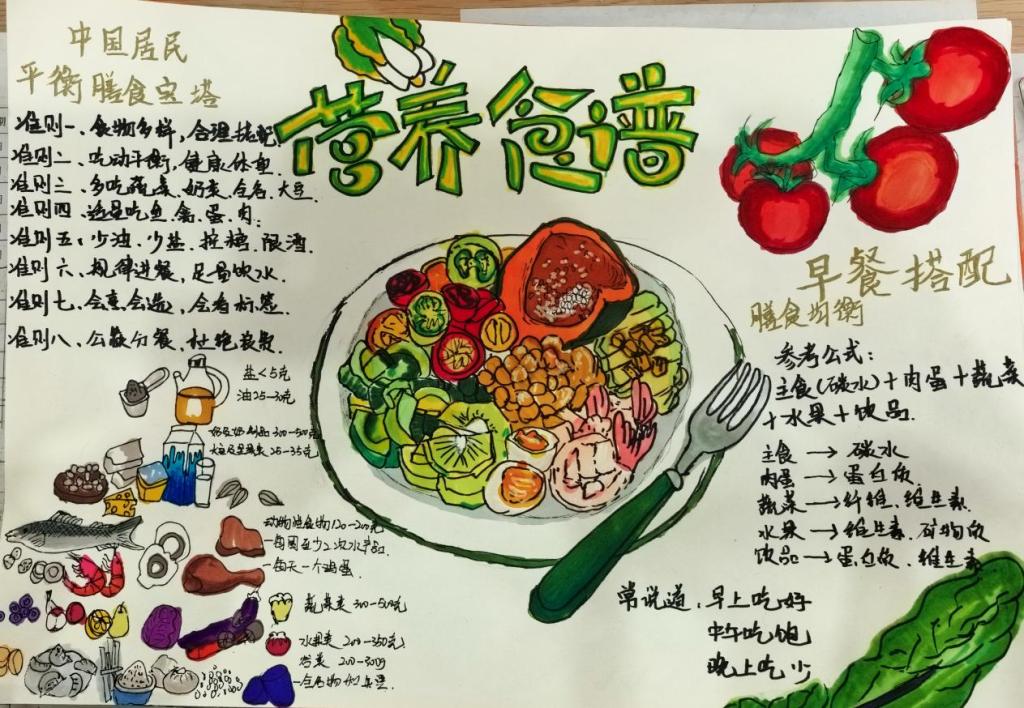 中国居民
平衡膳食宝塔
准则一、食物多样，合理搭配
准则二、吃动平衡，健康体重
准则三、多吃蔬果、奶类、全谷、大豆.
准则四、适量吃鱼、禽、蛋、肉;
准则五、少油、少盐、控糖、限酒.
准则六、规律进餐、足量饮水.
准则七、会烹会选，会看标签.
准则八、公筷分餐、杜绝浪费.
盐<5克
油25-30克
奶及奶制品 300-500克
大豆及坚果类 25-35克
动物性食物120-200克
一每周至少2次水产品.
一每天一个鸡蛋.
蔬菜类 300-500克
水果类 200-350克
谷类 200-300g
营养食谱
早餐搭配
膳食均衡
参考公式：
主食(碳水)+肉蛋+蔬菜
+水果+饮品.
主食 → 碳水
肉蛋 → 蛋白质
蔬菜 → 纤维、维生素.
水果 → 维生素、矿物质
饮品 → 蛋白质、维生素
常说道，早上吃好
中午吃饱
晚上吃少